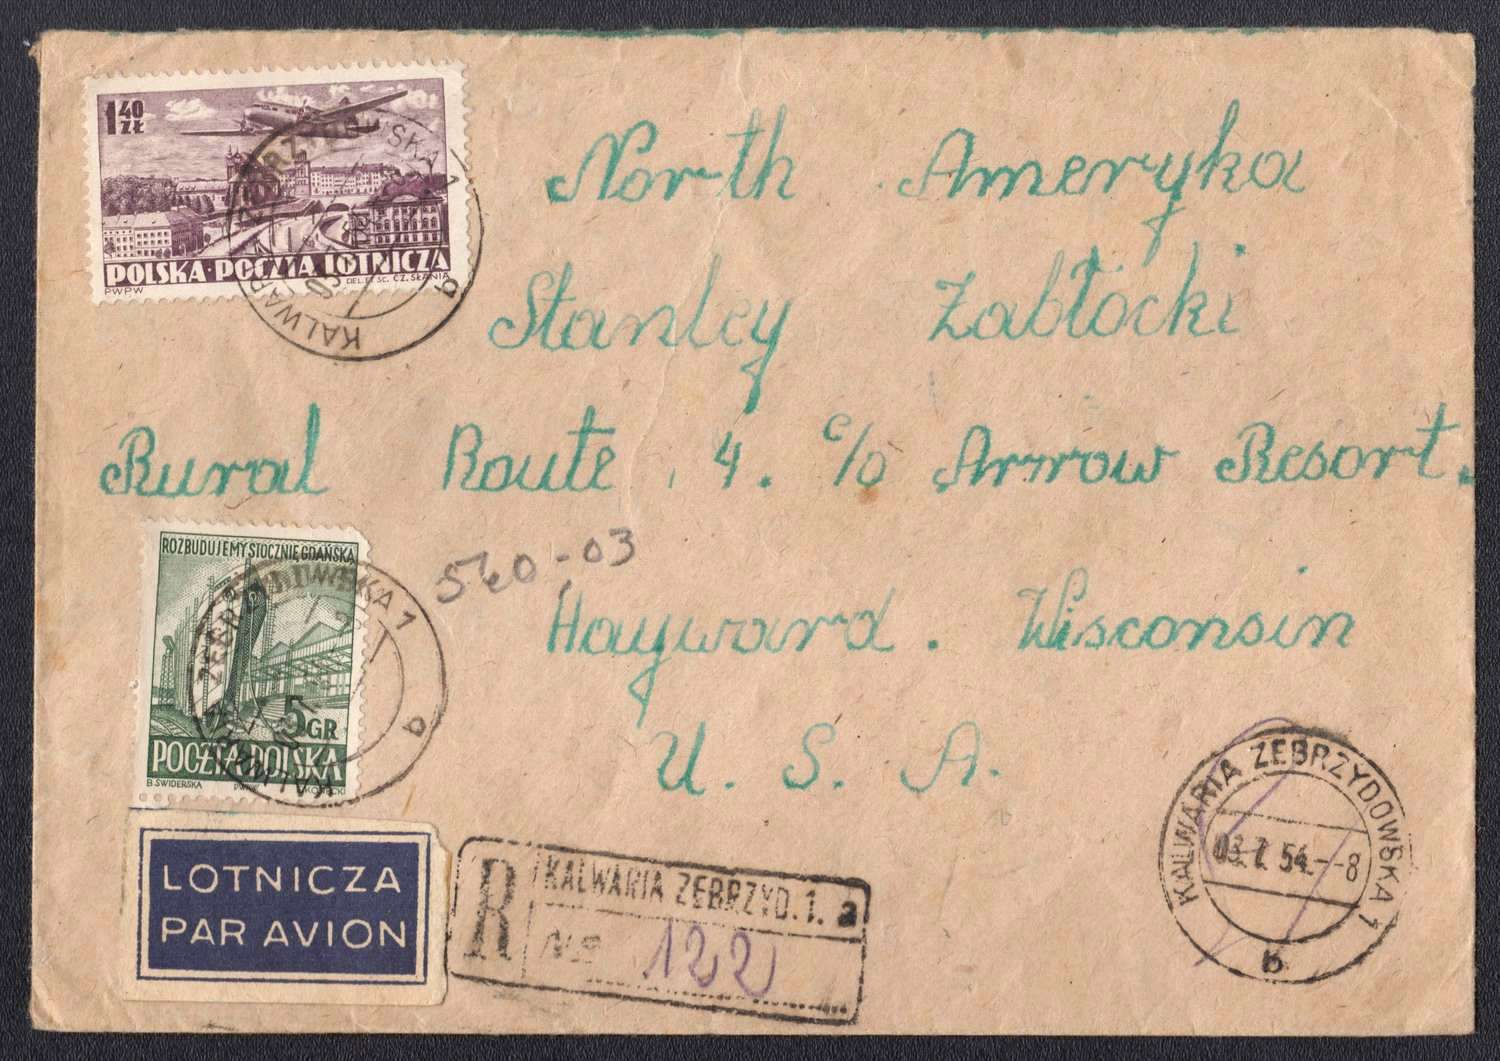 1 40 ZŁ
POLSKA·POCZTA LOTNICZA
PWPW
DEL. ET SC. CZ. SŁANIA
KALWARIA ZEBRZYDOWSKA 1
b
North Ameryka
Stanley Zabłocki
Rural Route . 4. c/o Arrow Resort.
ROZBUDUJEMY STOCZNIĘ GDAŃSKĄ
5 GR
POCZTA POLSKA
B. ŚWIDERSKA
KALWARIA ZEBRZYDOWSKA 1
a
560-03
Hayward . Wisconsin
U. S. A.
LOTNICZA
PAR AVION
R
KALWARIA ZEBRZYD. 1. a
№ 122
KALWARIA ZEBRZYDOWSKA 1
54.--8
b